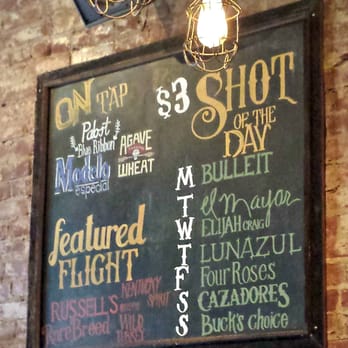 ON TAP
Pabst
Blue Ribbon
Modelo
especial
AGAVE
WHEAT
featured
FLIGHT
RUSSELL'S
Rare Breed
KENTUCKY
SPIRIT
WILD
TURKEY
$3 SHOT
OF THE
DAY
M BULLEIT
T el Mayor
W ELIJAH CRAIG
T LUNAZUL
F Four Roses
S CAZADORES
S Buck's choice